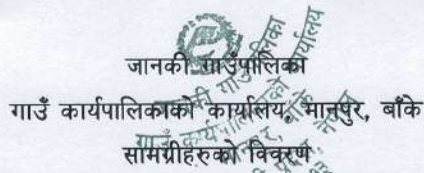 जानकी गाउँपालिका
गाउँ कार्यपालिकाको कार्यालय, मानपुर, बाँके
सामग्रीहरुको विवरण